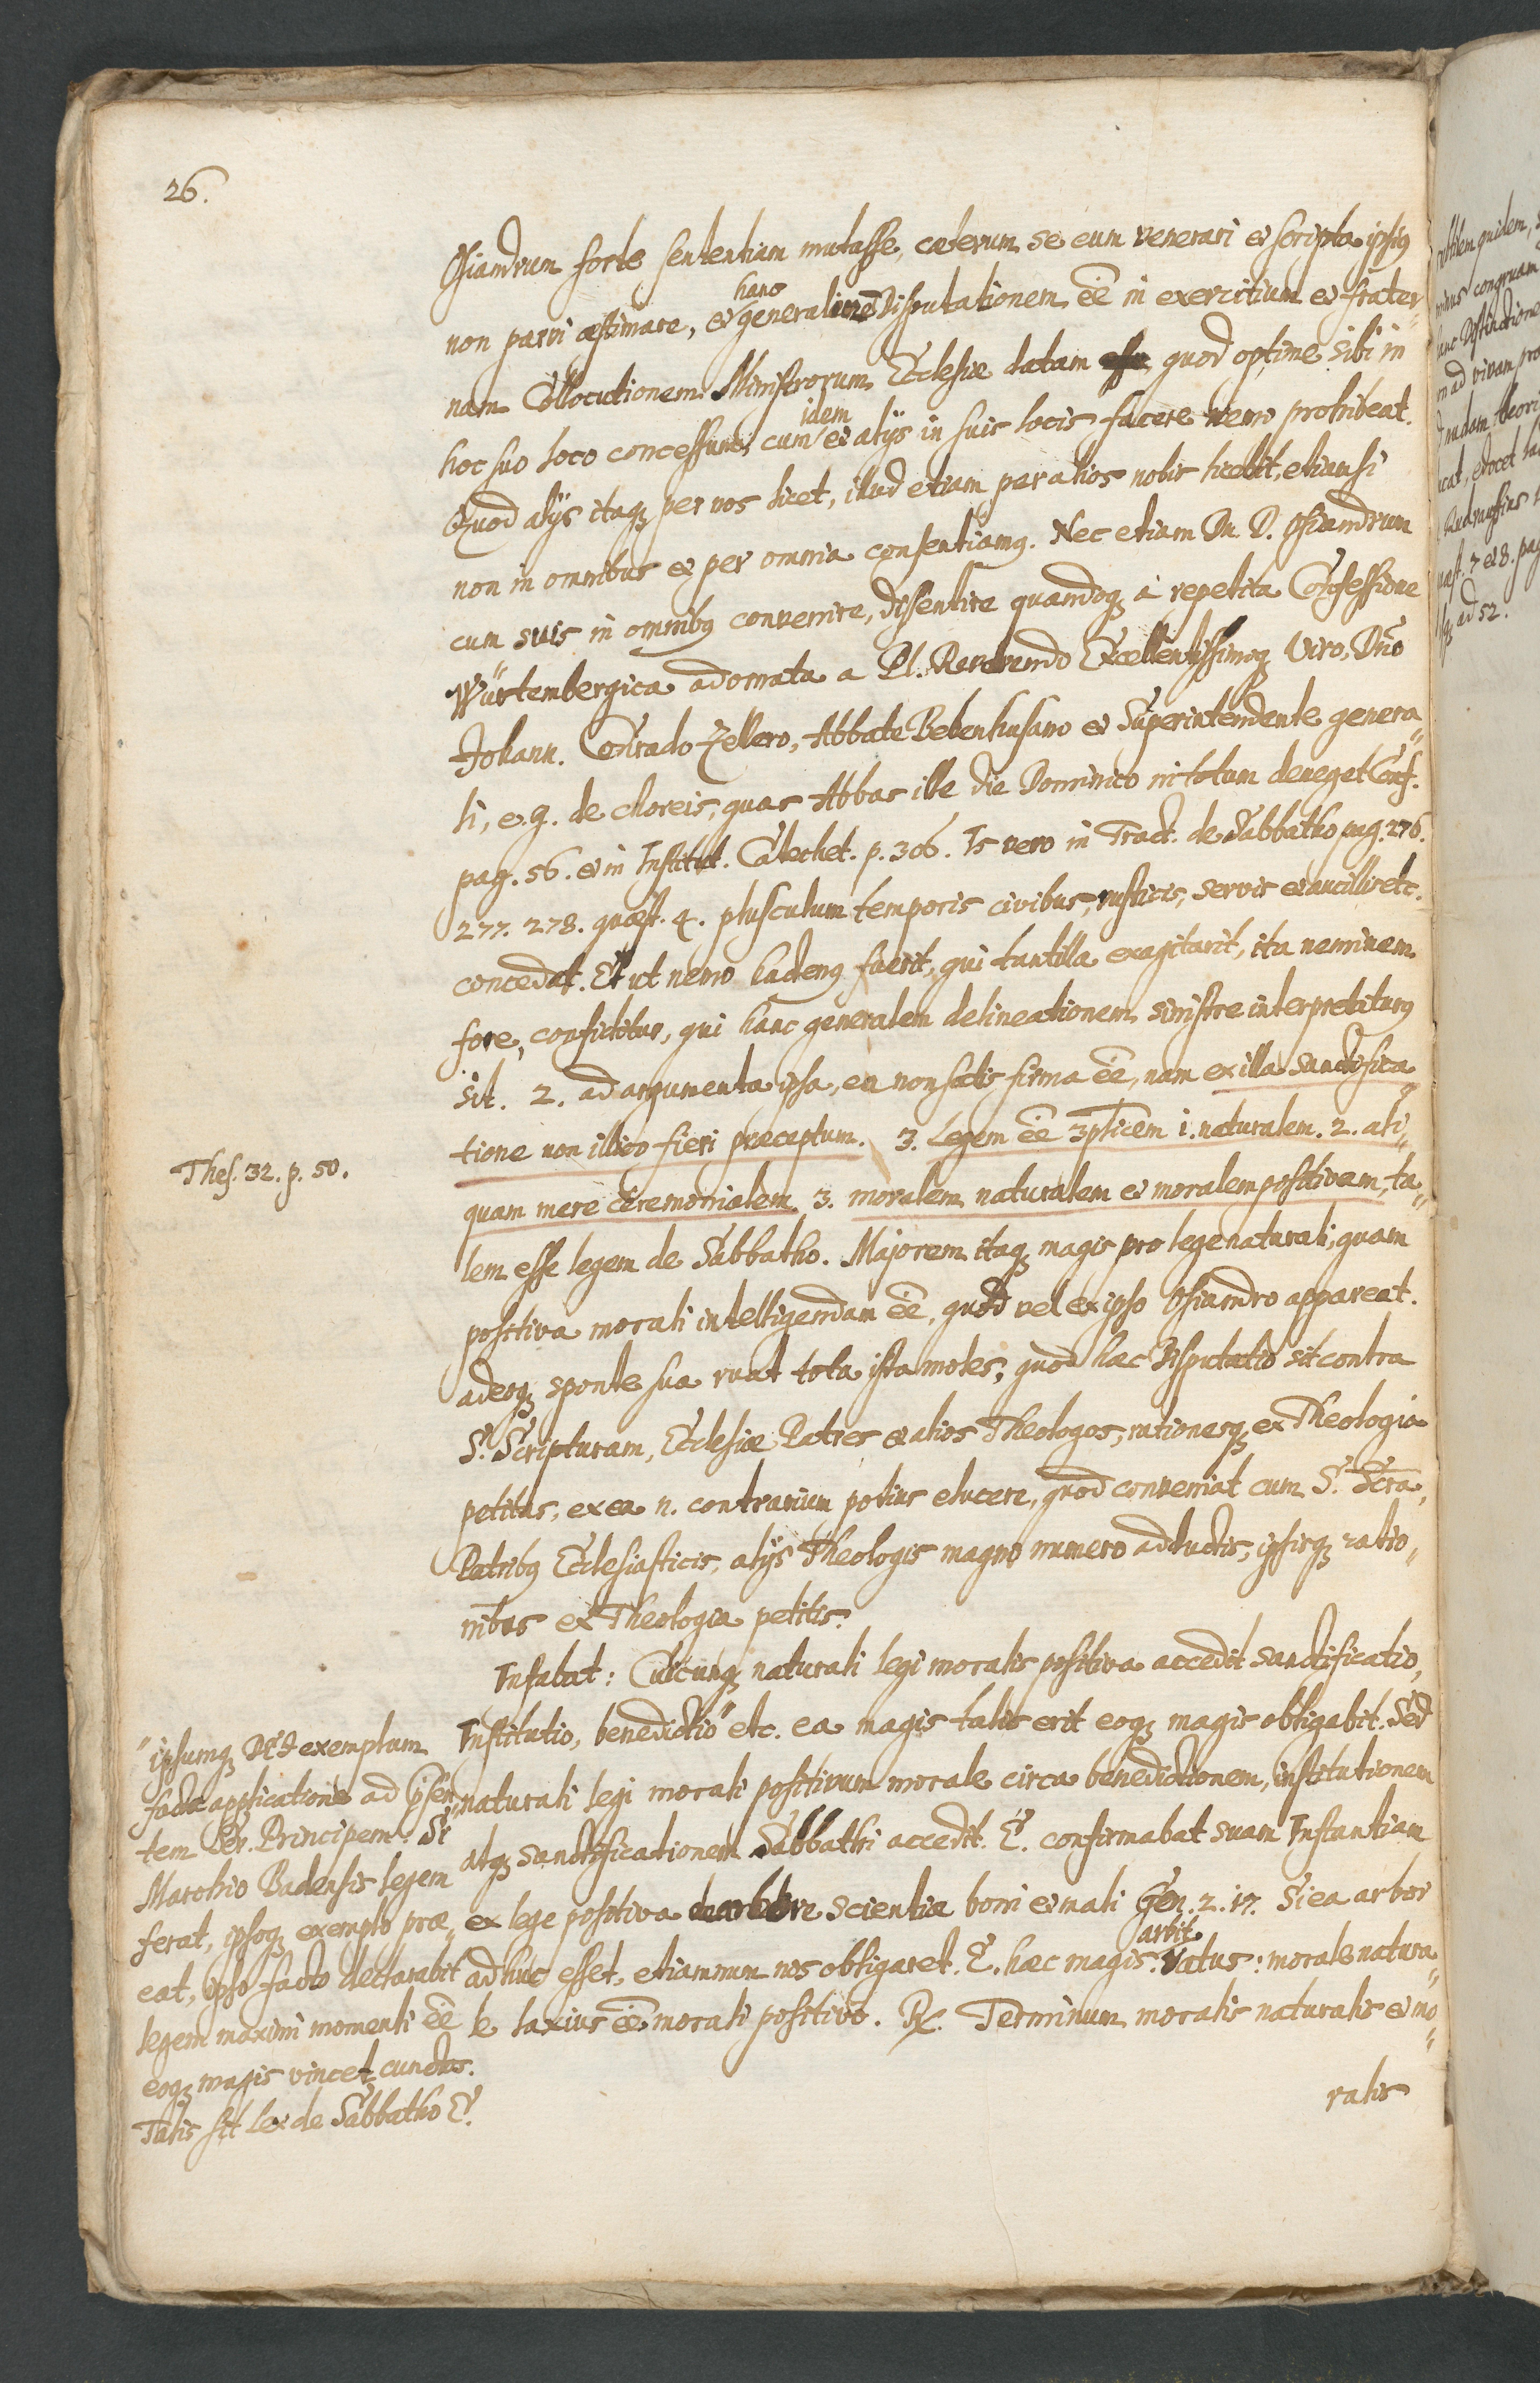 26.
Osiandrum forte sententiam mutasse, cæterum se eum venerari et scripta ipsiꝰ
hanc
non parvi æstimare, et generaliorē Disputationem eē in exercitium et frater„
nam Collocutionem Ministrorum Ecclesiæ datam quod optime sibi in
idem
hoc suo loco concessum, cum et alijs in suis locis facere nemo prohibeat.
Quod alijs itaqꝫ per nos licet, illud etiam per alios nobis licebit, etiamsi
non in omnibus et per omnia consentiamꝰ. Nec etiam Dn. D. Osiandrum
cum suis in omnibꝰ convenire, dissentire quandoqꝫ à repetita Confessione
Würtembergica adornata a Pl. Reverendo Excellentissimoqꝫ Viro, Dn̄o
Johann. Conrado Zellero, Abbate Bebenhusano et Superintendente genera„
li, e. g. de choreis, quas Abbas ille die Dominico in totum deneget Conf.
pag. 56. et in Institut. Catechet. p. 306. Is vero in Tract. de Sabbatho pag. 276.
277. 278. quæst. 4. plusculum temporis civibus, rusticis, servis et ancillis etc.
concedat. Et ut nemo hactenꝰ fuerit, qui tantilla exagitarit, ita neminem
fore, confiditur, qui hanc generalem delineationem sinistre interpretaturꝰ
sit. 2. ad argumenta ipsa, ea non satis firma eē, nam ex illa sanctifica„
tione non illico fieri præceptum. 3. Legem eē 3plicem 1. naturalem. 2. ali„
Thes. 32. p. 50.
quam mere ceremonialem. 3. moralem naturalem et moralem positivam, ta„
lem esse legem de Sabbatho. Majorem itaqꝫ magis pro lege naturali, quam
positiva morali intelligendam eē, quod vel ex ipso Osiandro appareat.
adeoqꝫ sponte sua ruat tota ista moles, quod hæc Disputatio sit contra
S. Scripturam, Ecclesiæ Patres et alios Theologos, rationesqꝫ ex Theologia
petitas, ex ea n. contrarium potius elucere, quod conveniat cum S. Scrā,
Patribꝰ Ecclesiasticis, alijs Theologis magno numero adductis, ipsisqꝫ ratio„
nibus ex Theologia petitis.
Instabat: Cuicunqꝫ naturali legi moralis positiva accedit sanctificatio,
Institutio, benedictio" etc. ea magis talis erit eoqꝫ magis obligabit. Sed
naturali legi morali positivum morale circa benedictionem, institutionem
atqꝫ sanctificationem Sabbathi accedit. E. confirmabat suam Instantiam
ex lege positiva de arbore scientiæ boni et mali Gen. 2. 17. Si ea arbor
arbit.
adhuc esset, etiamnum nos obligaret. E. hæc magis. Natus: morale natura„
le laxius eē morali positivo. Rx. Terminum moralis naturalis et mo„
ralis
" ipsumqꝫ Dei exemplum
facta applicatione ad p̄sen„
tem Ser. Principem: Si
Marchio Badensis legem
ferat, ipsoqꝫ exemplo præ„
eat, ipso facto declarabit
legem maximi momenti eē
eoqꝫ magis vinciet cunctos.
Talis sit lex de Sabbatho E.